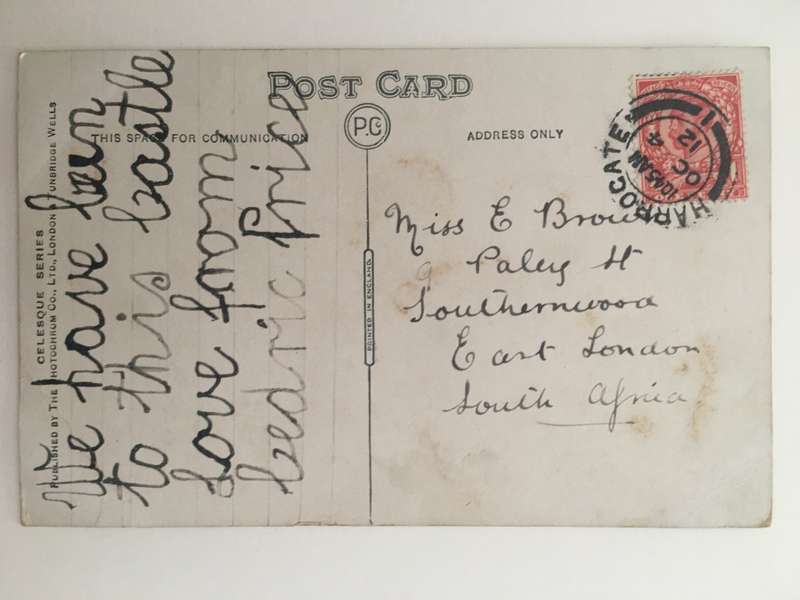 POST CARD
THIS SPACE FOR COMMUNICATION
P.C
ADDRESS ONLY
HARROGATE
10.45 AM
OC 4
12
1
We have been
to this castle
love from
Cedric Price
Miss E Brown
9 Paley St
Southernwood
East London
South Africa
PRINTED IN ENGLAND
CELESQUE SERIES
PUBLISHED BY THE PHOTOCHROM CO., LTD., LONDON TUNBRIDGE WELLS